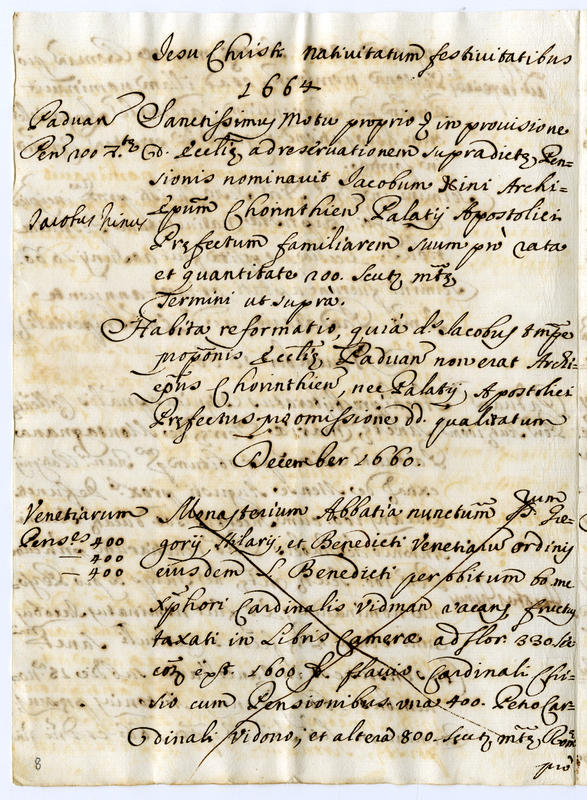 Iesu Christi nativitatum festivitatibus
1664
Paduan
Sanctissimus Motu proprio in provisione
Pens 200
d. Eccliæ ad reservationem supradictæ Pen=
sionis nominavit Jacobum Nini Archi=
Jacobus Ninus
epum Chorinthien Palatij Apostolici
Prefectum familiarem suum prò rata
et quantitate 200. scut mtæ
Termini ut suprà.
Habita reformatio, quia ds Iacobus tempe
propónis Eccliæ Paduan non erat Archi=
epus Chorinthien, nec Palatij Apostolici
Prefectus, omissione dd. qualitatum
December 1660.
Venetiarum
Monasterium Abbatia nuncũm SS. Gre=
rum
Penses 400
gorij, Hilarij, et Benedicti Venetiaru ordinis
— 400
— 400
eiusdem S. Benedicti per obitum bo: me:
Xphori Cardinalis Vidman vacans fructus
taxati in Libris Cameræ ad flor. 330
1600. flavio Cardinali Chi=
sio cum Pensionibus una 400. Petro Car=
dinali Vidono, et altera 800. scut mtæ Rom
8
prò